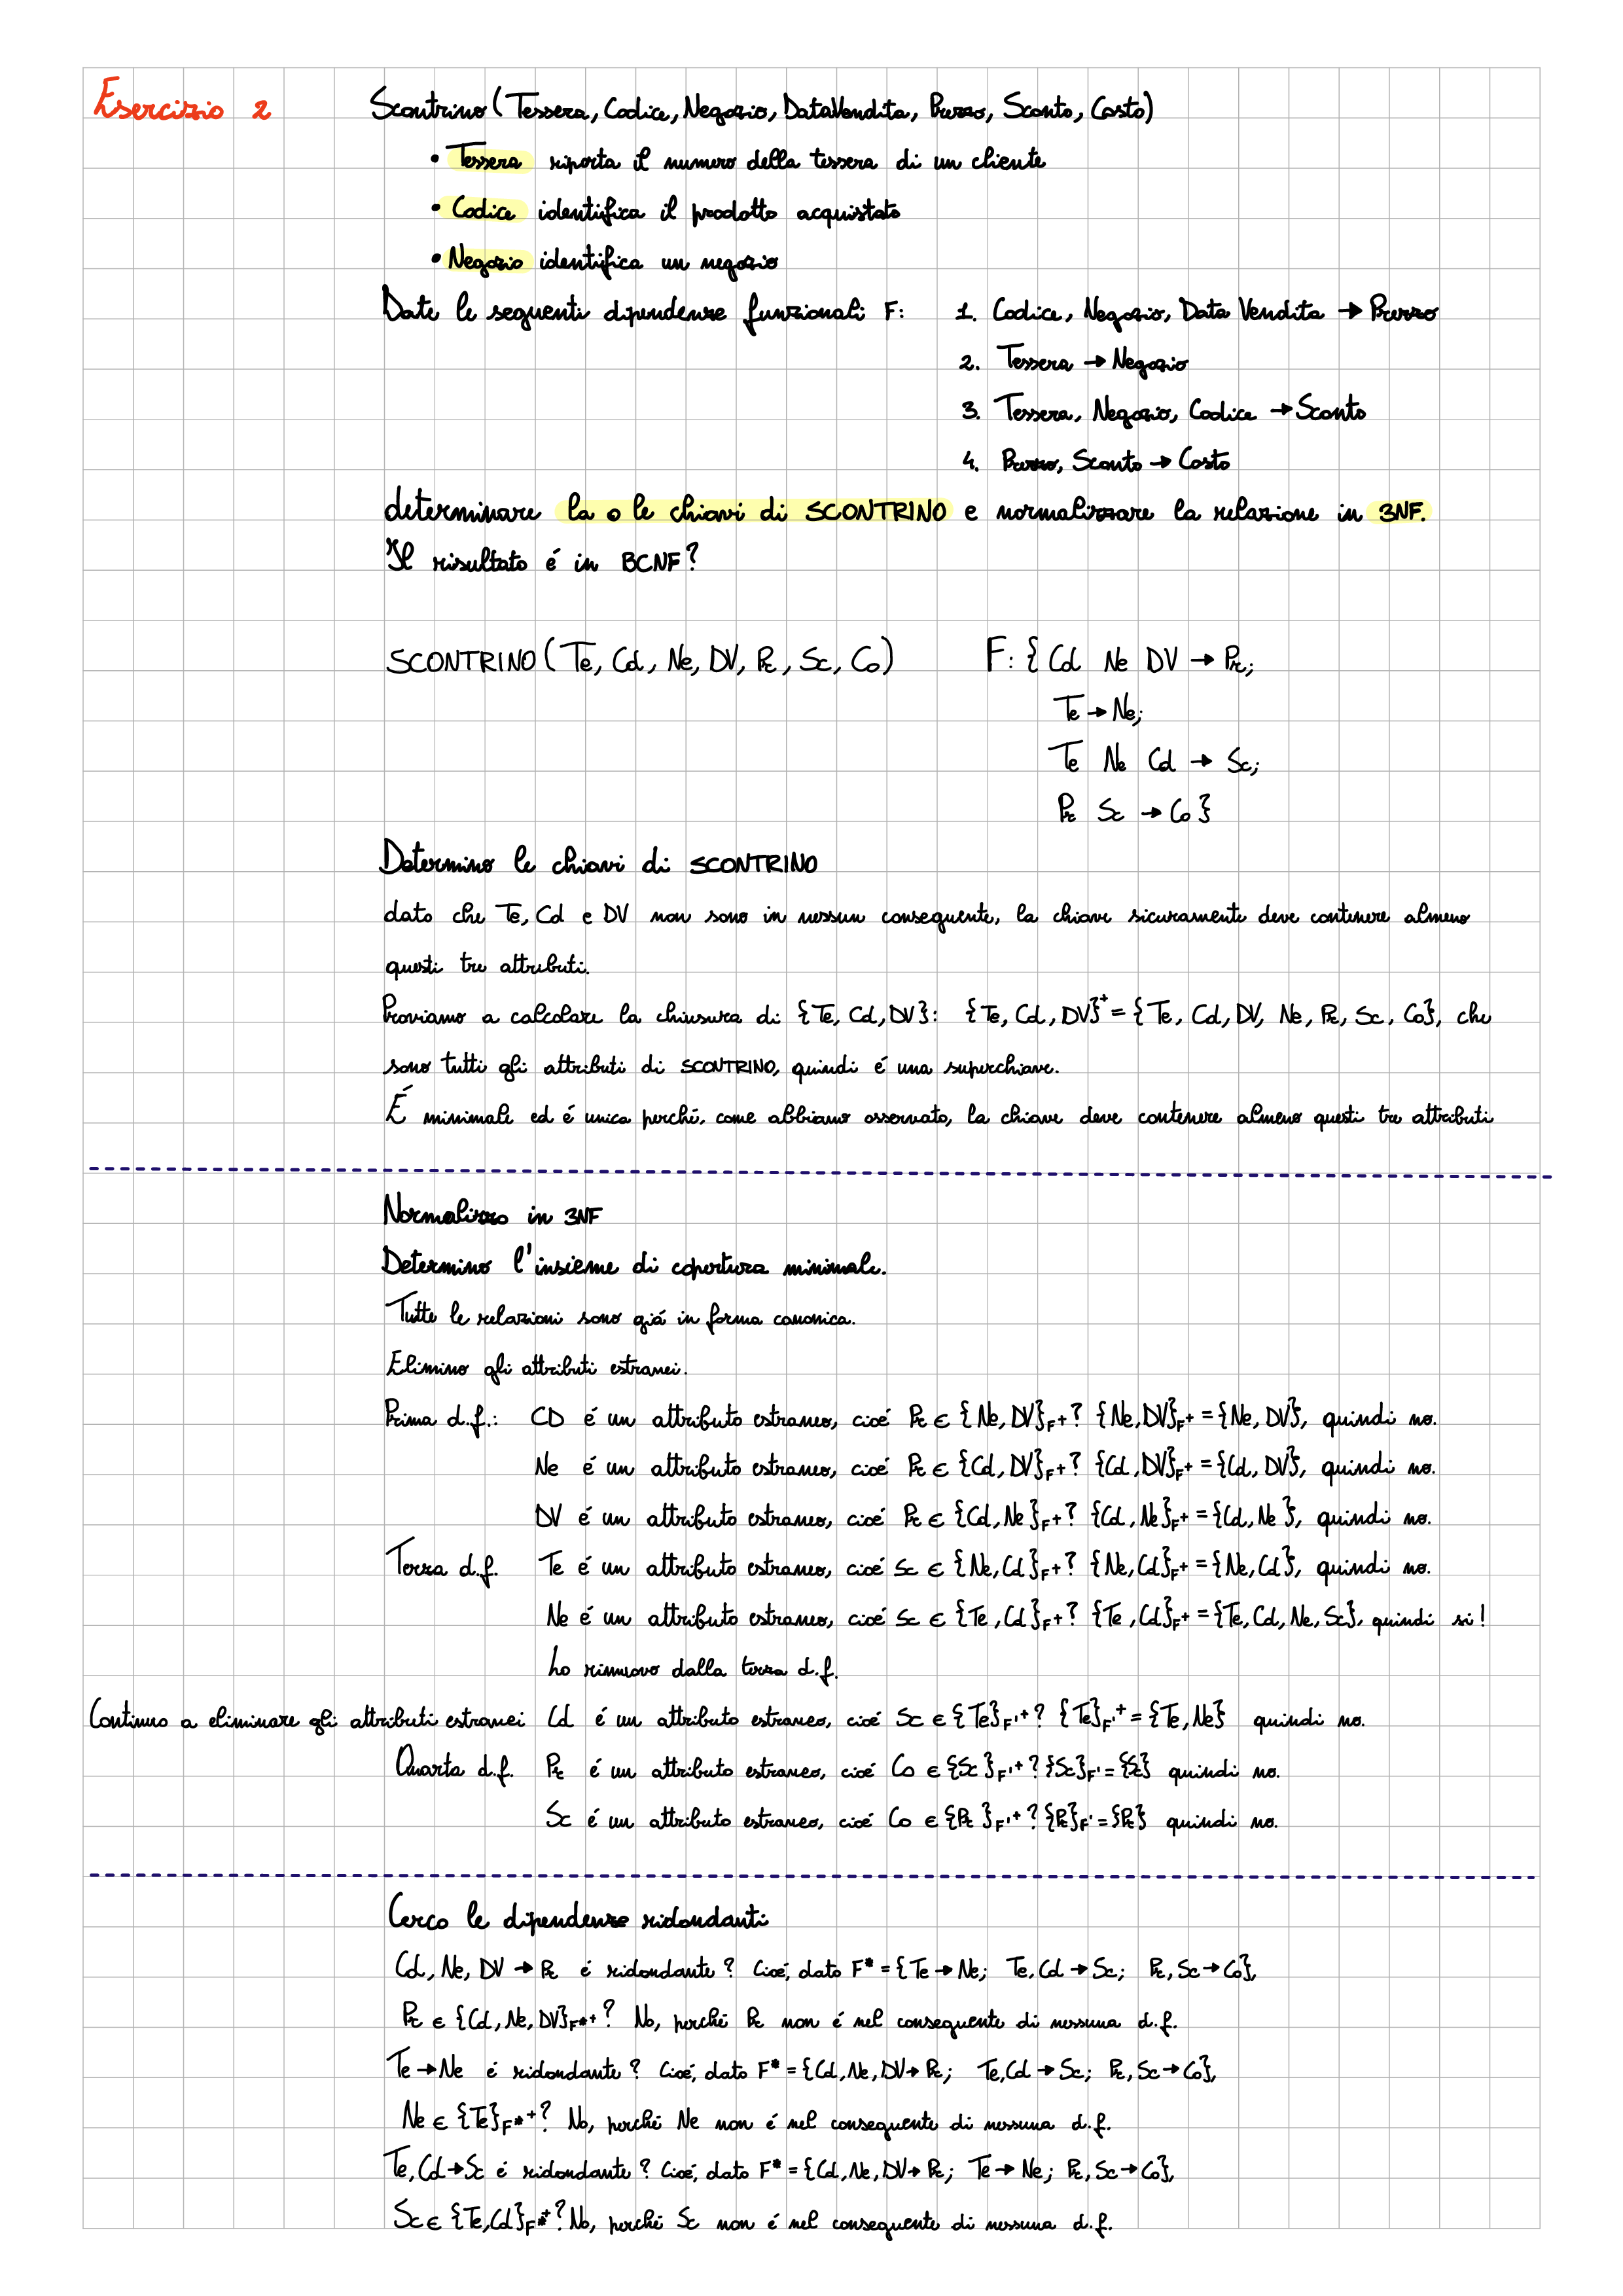 Esercizio 2 Scontrino (Tessera, Codice, Negozio, DataVendita, Prezzo, Sconto, Costo)
• Tessera riporta il numero della tessera di un cliente
• Codice identifica il prodotto acquistato
• Negozio identifica un negozio
Date le seguenti dipendenze funzionali F: 1. Codice, Negozio, Data Vendita → Prezzo
2. Tessera → Negozio
3. Tessera, Negozio, Codice → Sconto
4. Prezzo, Sconto → Costo
determinare la o le chiavi di SCONTRINO e normalizzare la relazione in 3NF.
Il risultato é in BCNF?
SCONTRINO (Te, Cd, Ne, DV, Pr, Sc, Co) F: { Cd Ne DV → Pr;
Te → Ne;
Te Ne Cd → Sc;
Pr Sc → Co }
Determino le chiavi di SCONTRINO
dato che Te, Cd e DV non sono in nessun conseguente, la chiave sicuramente deve contenere almeno
questi tre attributi.
Proviamo a calcolare la chiusura di {Te, Cd, DV}: {Te, Cd, DV}⁺ = {Te, Cd, DV, Ne, Pr, Sc, Co}, che
sono tutti gli attributi di SCONTRINO, quindi é una superchiave.
É minimale ed é unica perché, come abbiamo osservato, la chiave deve contenere almeno questi tre attributi
Normalizzo in 3NF
Determino l'insieme di copertura minimale.
Tutte le relazioni sono giá in forma canonica.
Elimino gli attributi estranei.
Prima d.f.: CD é un attributo estraneo, cioé Pr ∈ {Ne, DV}F+? {Ne, DV}F+ = {Ne, DV}, quindi no.
Ne é un attributo estraneo, cioé Pr ∈ {Cd, DV}F+? {Cd, DV}F+ = {Cd, DV}, quindi no.
DV é un attributo estraneo, cioé Pr ∈ {Cd, Ne}F+? {Cd, Ne}F+ = {Cd, Ne}, quindi no.
Terza d.f. Te é un attributo estraneo, cioé Sc ∈ {Ne, Cd}F+? {Ne, Cd}F+ = {Ne, Cd}, quindi no.
Ne é un attributo estraneo, cioé Sc ∈ {Te, Cd}F+? {Te, Cd}F+ = {Te, Cd, Ne, Sc}, quindi si!
Lo rimuovo dalla terza d.f.
Continuo a eliminare gli attributi estranei Cd é un attributo estraneo, cioé Sc ∈ {Te}F'+? {Te}F'+ = {Te, Ne} quindi no.
Quarta d.f. Pr é un attributo estraneo, cioé Co ∈ {Sc}F'+? {Sc}F' = {Sc} quindi no.
Sc é un attributo estraneo, cioé Co ∈ {Pr}F'+? {Pr}F' = {Pr} quindi no.
Cerco le dipendenze ridondanti
Cd, Ne, DV → Pr é ridondante? Cioé, dato F* = {Te → Ne; Te, Cd → Sc; Pr, Sc → Co},
Pr ∈ {Cd, Ne, DV}F*+? No, perché Pr non é nel conseguente di nessuna d.f.
Te → Ne é ridondante? Cioé, dato F* = {Cd, Ne, DV → Pr; Te, Cd → Sc; Pr, Sc → Co},
Ne ∈ {Te}F*+? No, perché Ne non é nel conseguente di nessuna d.f.
Te, Cd → Sc é ridondante? Cioé, dato F* = {Cd, Ne, DV → Pr; Te → Ne; Pr, Sc → Co},
Sc ∈ {Te, Cd}F*+? No, perché Sc non é nel conseguente di nessuna d.f.